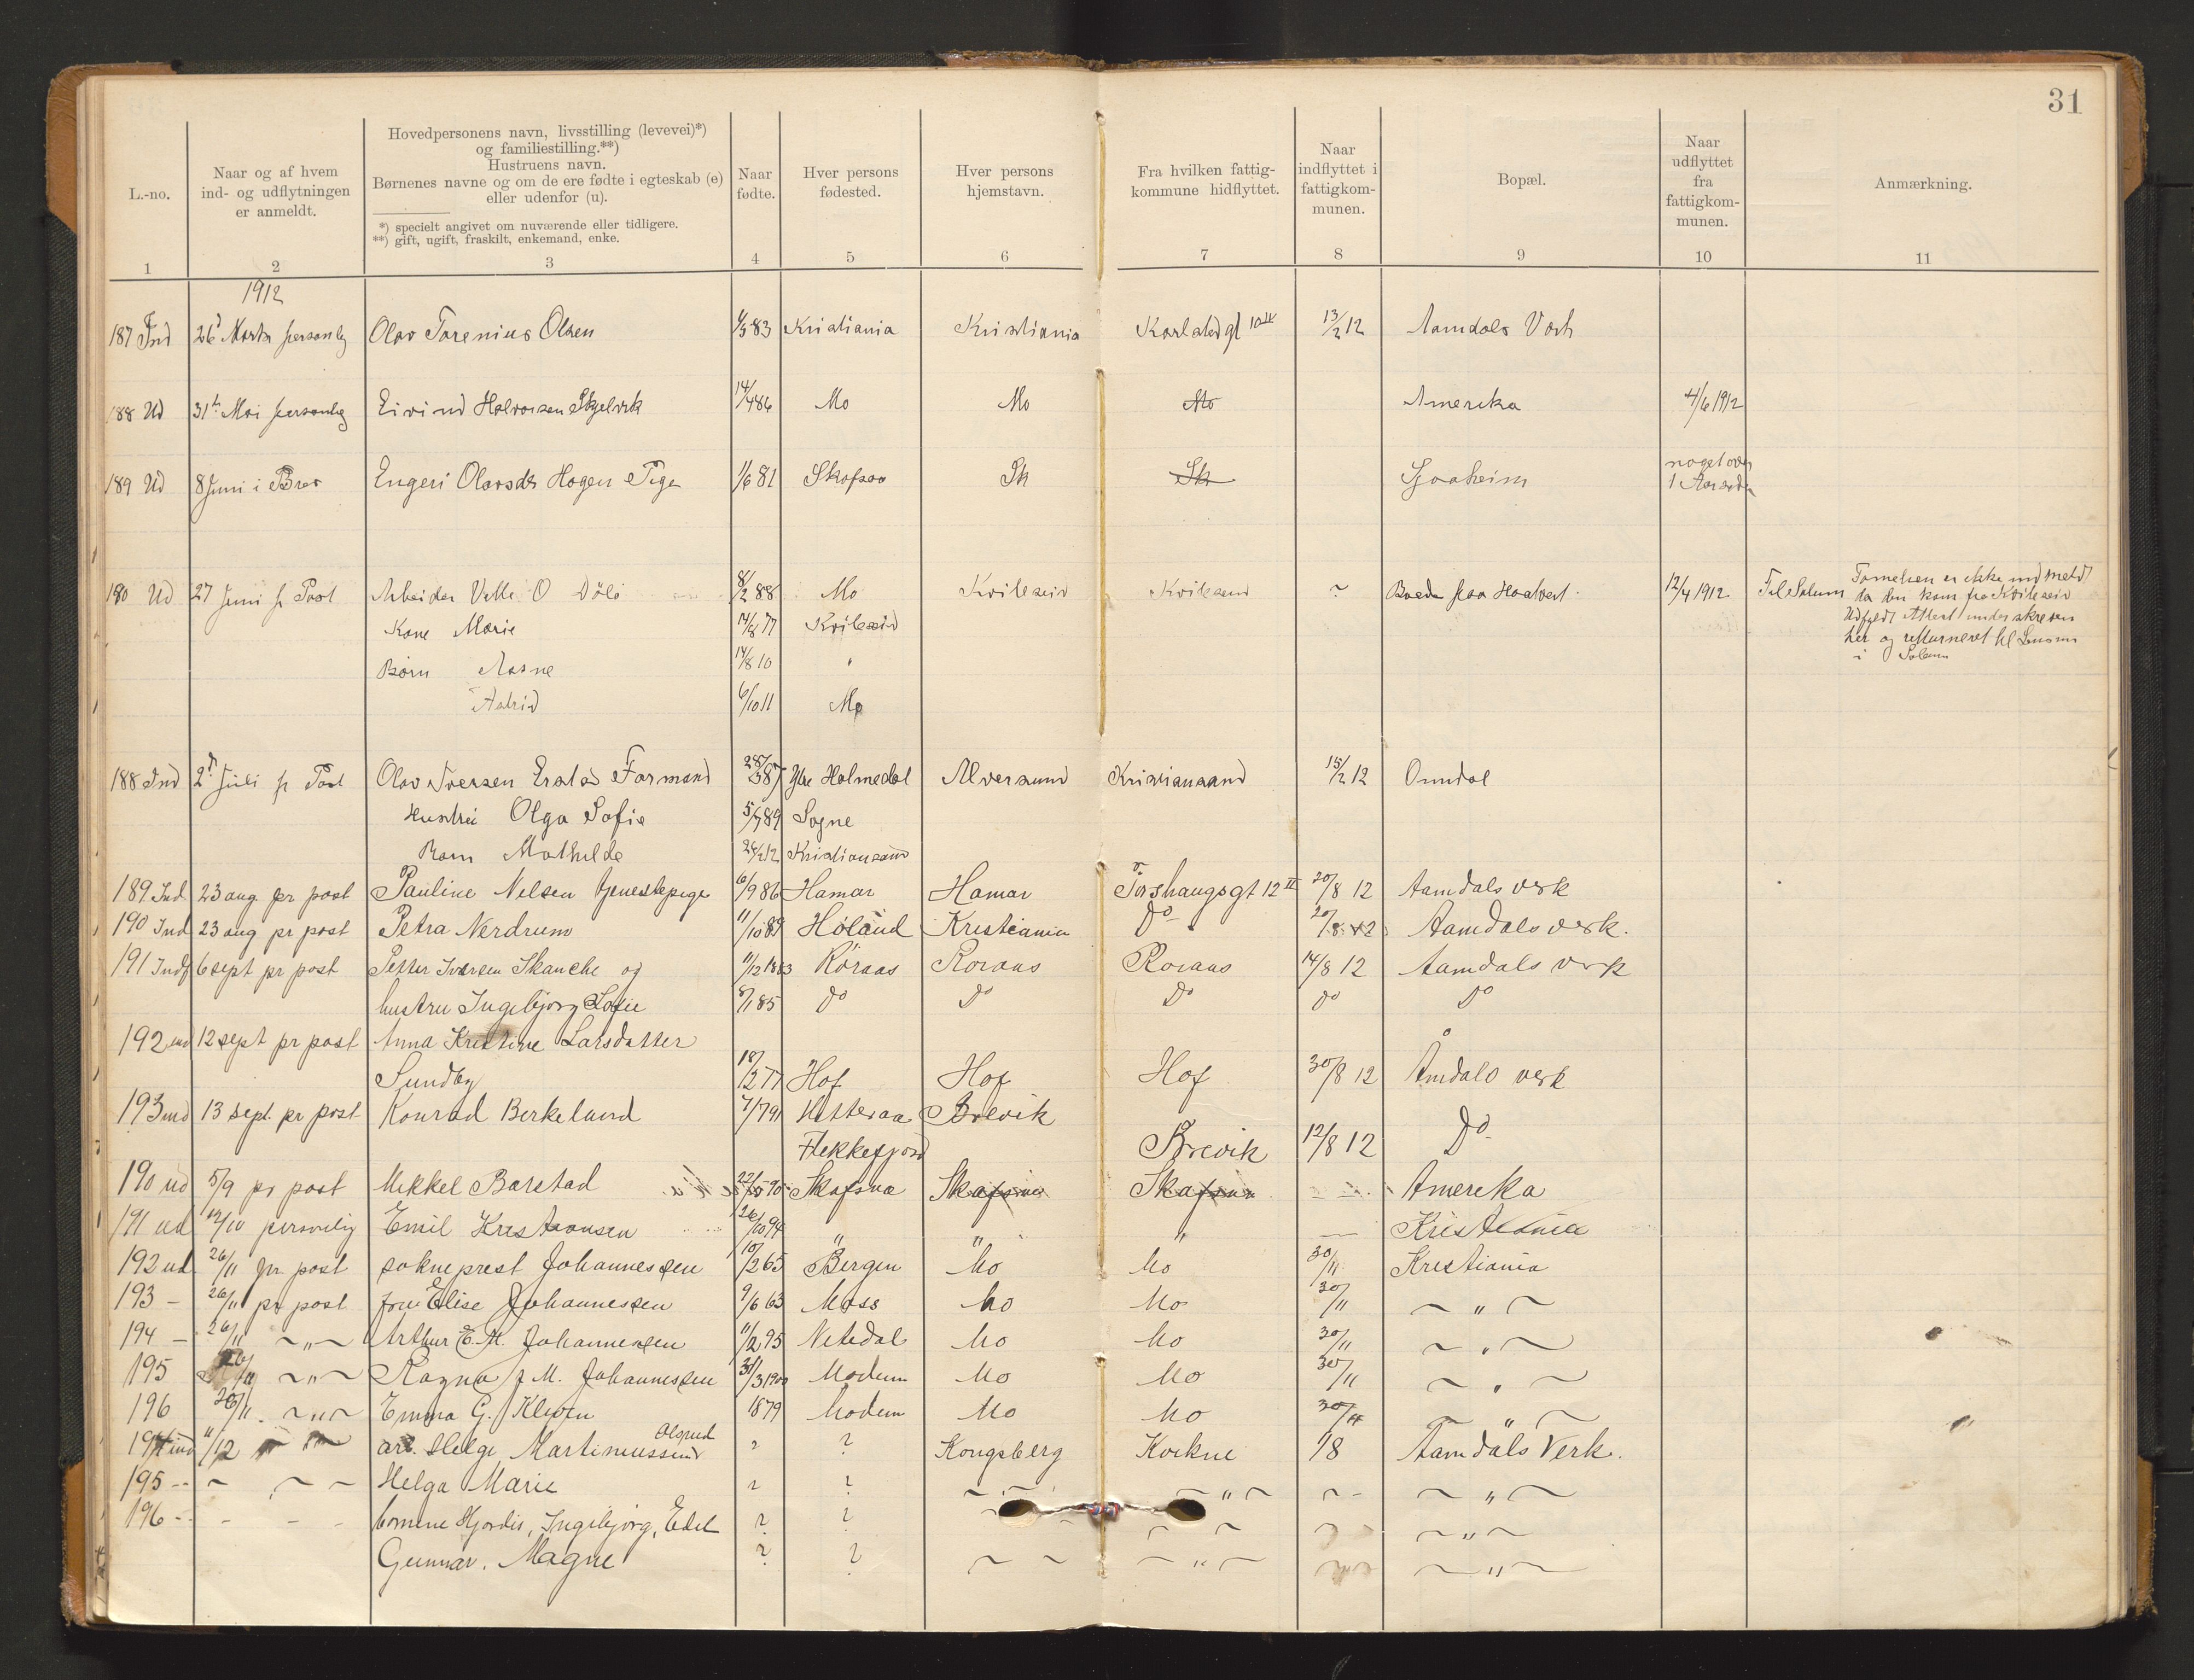 31
L.-no.
Naar og af hvem
ind- og udflytningen
er anmeldt.
Hovedpersonens navn, livsstilling (levevei)*)
og familiestilling.**)
Hustruens navn.
Børnenes navne og om de ere fødte i egteskab (e)
eller udenfor (u).
*) specielt angivet om nuværende eller tidligere.
**) gift, ugift, fraskilt, enkemand, enke.
Naar
fødte.
Hver persons
fødested.
Hver persons
hjemstavn.
Fra hvilken fattig-
kommune hidflyttet.
Naar
indflyttet i
fattigkom-
munen.
Bopæl.
Naar
udflyttet
fra
fattigkom-
munen.
Anmærkning.
1 2 3 4 5 6 7 8 9 10 11
1912
187 Ind 26 Marts personlig Olav Torenius Olsen 83 Kristiania Kristiania Karlstdgt 10 13/2 12 Aamdals Værk
188 Ud 31te Mai personlig Eivind Halvorsen Skjelvik 14/4 86 Mo Mo Mo Amerika 4/6 1912
189 Ud 8 Juni i Brev Engeri Olavsdr Hagen Pige 1/6 81 Skafsaa Sk Sk Sjaaheim noget over
1 Aar siden
180 Ud 27 Juni p Post Arbeider Vetle O Döli 8/2 88 Mo Kviteseid Kviteseid ~ Boede paa Haatveit 12/4 1912 Til Solum Familien er ikke indmeldt
da den kom fra Kviteseid
Udfyldt Attest underskreven
her og returneret til Lensm
i Solum
Kone Marie 14/8 77 Kviteseid
Børn Aasne 14/8 10 "
Astrid 6/10 11 Mo
188 Ind 2 Juli p Post Olav Iversen Formand 28/3 87 Ytre Holmedal Alversund Kristiansand 15/2 12 Omdal
Hustru Olga Sofie 5/7 89 Sogne
Barn Mathilde 24/2 12 Kristiansand
189 Ind 23 aug pr post Pauline Nelsen tjenestepige 6/9 86 Hamar Hamar Torshaugsgt 12 II 20/8 12 Aamdals verk
190 Ind 23 aug pr post Petra Nerdrum 11/10 89 Høland Kristiania Do 20/8 12 Aamdals verk.
191 Indf 6 sept pr post Petter Iversen Skanche og 11/12 1883 Røraas Roraas Roraas 14/8 12 Aamdals verk
hustru Ingebjørg Sofie 8/1 85 Do Do Do Do Do
192 ind 12 sept pr post Anna Kristine Larsdatter
Sundby 18/2 77 Hof Hof Hof 30/8 12 Åmdals verk
193 ind 13 sept. pr post Konrad Berkeland 7/1 79 Hitteraa Brevik
Flekkefjord Brevik 12/8 12 Do
190 ud 5/9 pr post Mikkel Barstad 22/5 90 Skafsaa Skafsaa Skafsaa Amerika
191 ud 14/10 personlig Emil Kristiansen 26/10 94 " " " — Kristiania
192 ud 26/11 pr. post sokneprest Johannessen 10/2 65 Bergen Mo Mo 30/11 Kristiania
193 – 26/11 pr post fru Elise Johannessen 9/6 63 Moss Mo Mo 30/11 ~ " ~
194 – 26/11 ~ " ~ Arthur E. M. Johannessen 11/2 95 Nitedal Mo Mo 30/11 ~ " ~
195 26/11 ~ " ~ Ragna J. M. Johannessen 31/3 1900 Modum Mo Mo 30/11 ~ " ~
196 26/11 ~ " ~ Emma G. Kleven 1879 Modum Mo Mo 30/11 ~ " ~
194 ind 11/12 ~ " ~ arb. Helge Martinussen Olsrud ? ? Kongsberg Kvikne 1/8 Aamdals Verk.
195 – ~ " ~ Helga Marie ? ? ~ " ~ ~ " ~ ~ ~ " ~
196 – – – – børnene Hjordis, Ingebjørg, Edel ? ? ~ ~ ~ " ~
Gunnar, Magne ? ? ~ ~ ~ " ~ ~ " ~